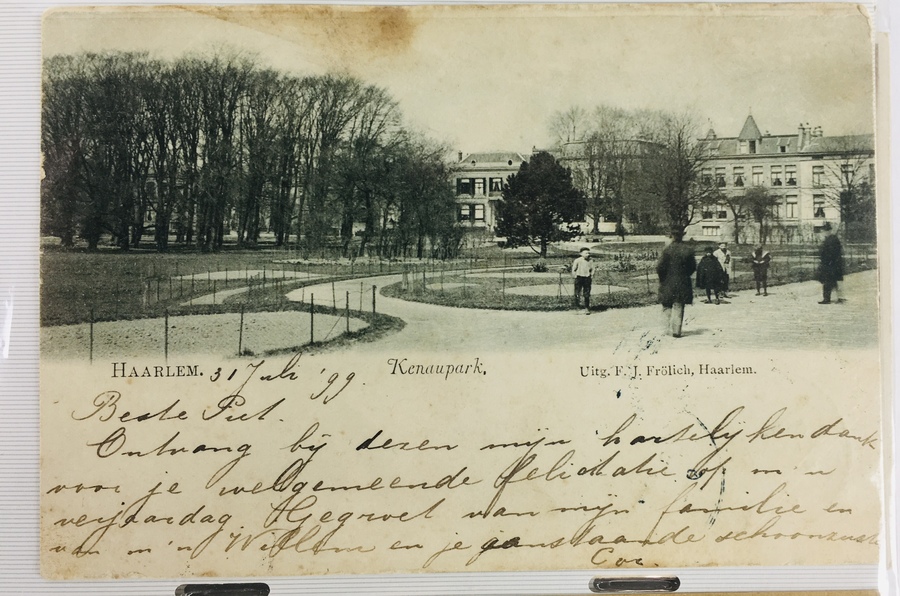 HAARLEM. 31 Juli '99. Kenaupark. Uitg. F. J. Frölich, Haarlem.
Beste Piet.
Ontvang bij dezen mijn hartelijken dank
voor je welgemeende felicitatie op m'n
verjaardag. Gegroet van mijn familie en
van m'n Willem en je aanstaande schoonzust
Coo.